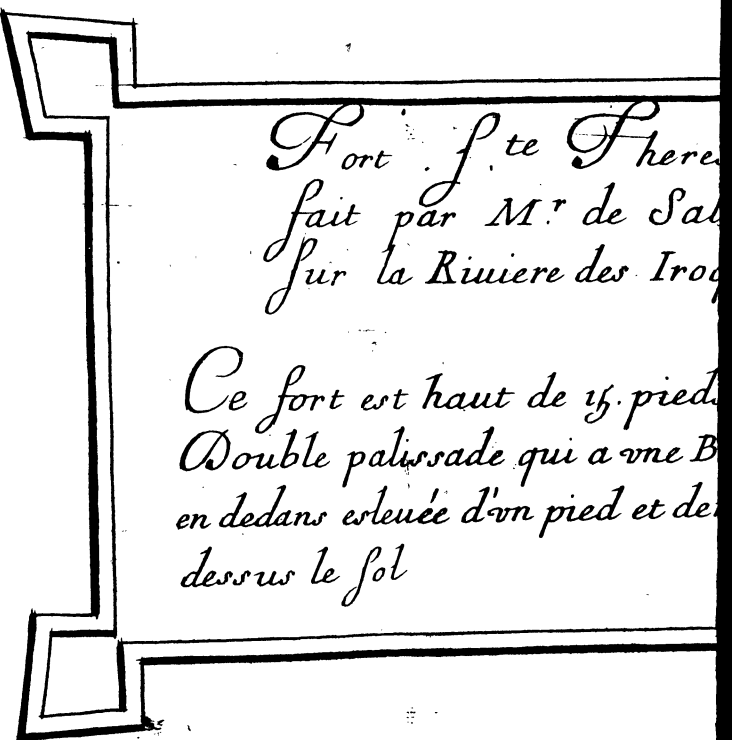 Fort S.te There
fait par M.r de Sal
sur la Riuiere des Iroq
Ce fort est haut de 15. pieds
Double palissade qui a vne B
en dedans esleuée d'vn pied et de
dessus le sol